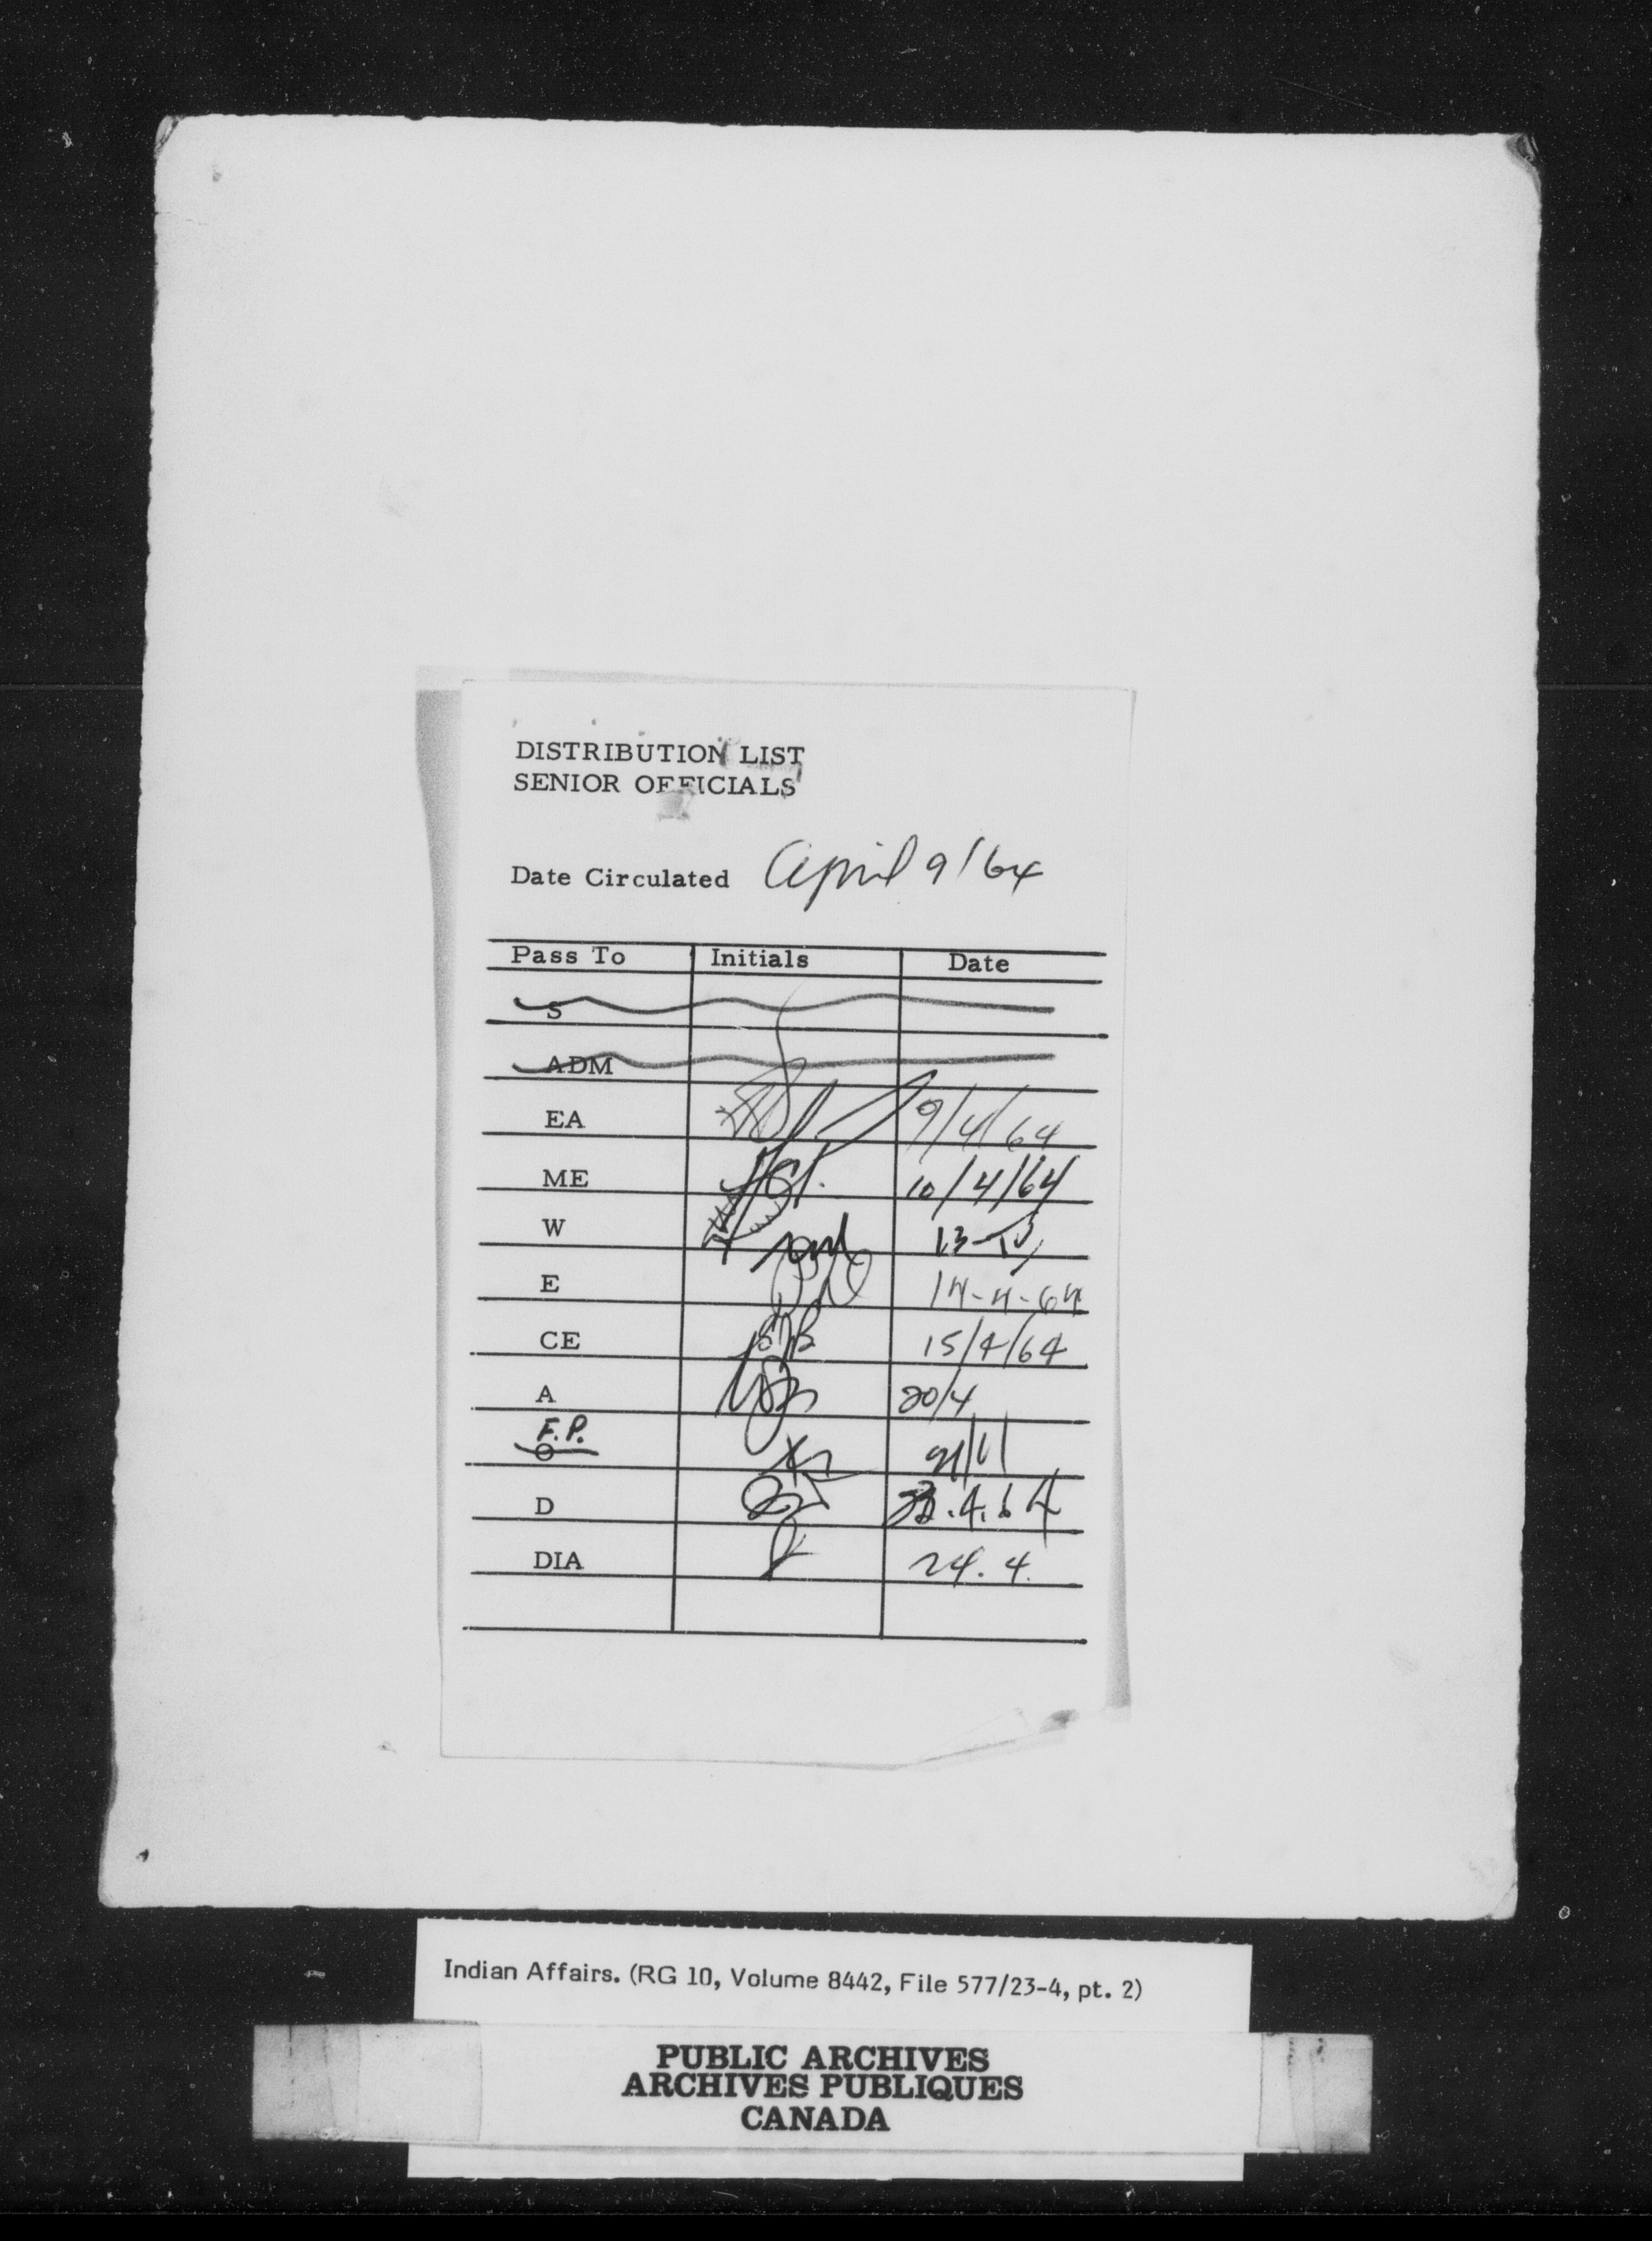 DISTRIBUTION LIST
SENIOR OFFICIALS
Date Circulated April 9/64
Pass To Initials Date
S
ADM
EA 9/4/64
ME 10/4/64
W 13
E 14-4-64
CE 15/4/64
A 20/4
F.P.
O
D .4.64
DIA 24.4.
Indian Affairs. (RG 10, Volume 8442, File 577/23-4, pt. 2)
PUBLIC ARCHIVES
ARCHIVES PUBLIQUES
CANADA